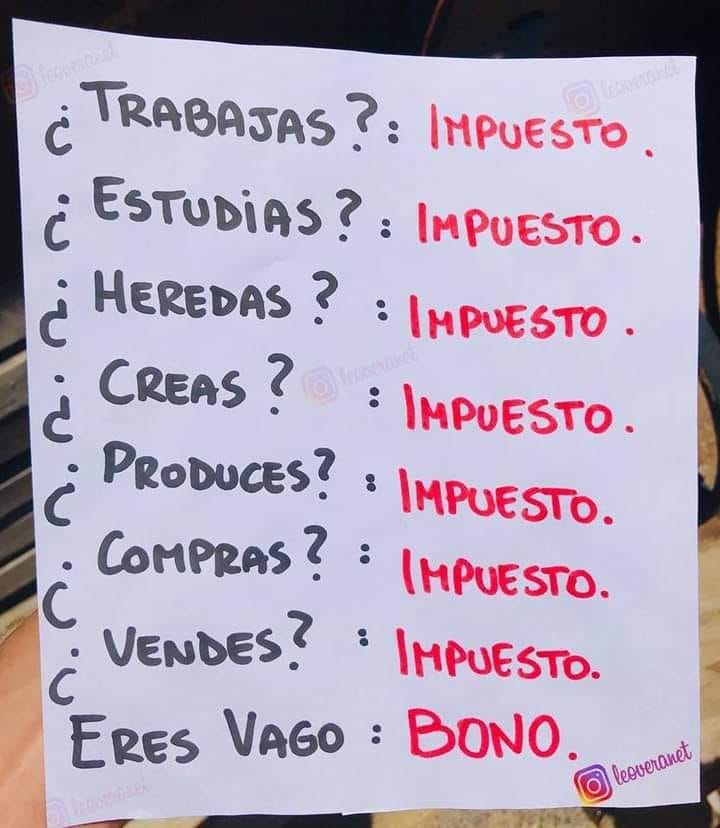 leoveranet
leoveranet
¿TRABAJAS?: IMPUESTO.
¿ESTUDiAS?: IMPUESTO.
¿HEREDAS?: IMPUESTO.
leoveranet
¿CREAS?: IMPUESTO.
¿PRODUCES?: IMPUESTO.
¿COMPRAS?: IMPUESTO.
¿VENDES?: IMPUESTO.
ERES VAGO: BONO.
leoveranet
leoveranet